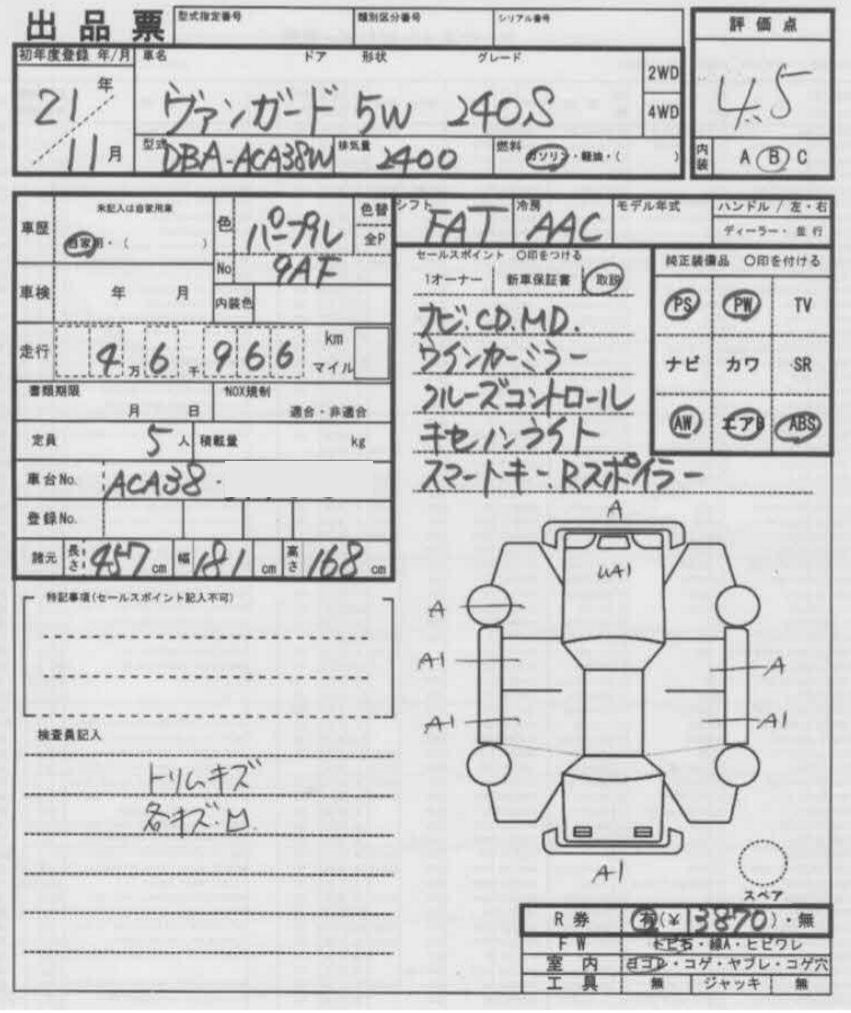 出品票 型式指定番号 類別区分番号 シリアル番号
評価点
初年度登録 年/月 車名 ドア 形状 グレード
21年 ヴァンガード 5W 240S 2WD
4WD
4.5
11月 型式 DBA-ACA38W 排気量 2400 燃料 ガソリン・軽油・( )
内装 A B C
車歴 未記入は自家用車
自家用・( )
色 パープル 色替 全P
No 9AF
シフト FAT 冷房 AAC モデル年式 ハンドル / 左・右
ディーラー・並行
車検 年 月 内装色
走行 4万6千966 km
マイル
セールスポイント ○印をつける
1オーナー 新車保証書 取説
ナビ.CD.MD.
ウインカーミラー
クルーズコントロール
キセノンライト
スマートキー.Rスポイラー
純正装備品 ○印を付ける
PS PW TV
ナビ カワ SR
AW エアB ABS
書類期限 月 日 NOX規制 適合・非適合
定員 5人 積載量 kg
車台No. ACA38-
登録No.
諸元 長さ 457cm 幅 181cm 高さ 168cm
特記事項(セールスポイント記入不可)
検査員記入
トリムキズ
各キズ.凹.
A
A
A1 A
A1 A1
A1
スペア
R券 有(¥3870)・無
FW トビ石・線A・ヒビワレ
室内 ヨゴレ・コゲ・ヤブレ・コゲ穴
工具 無 ジャッキ 無